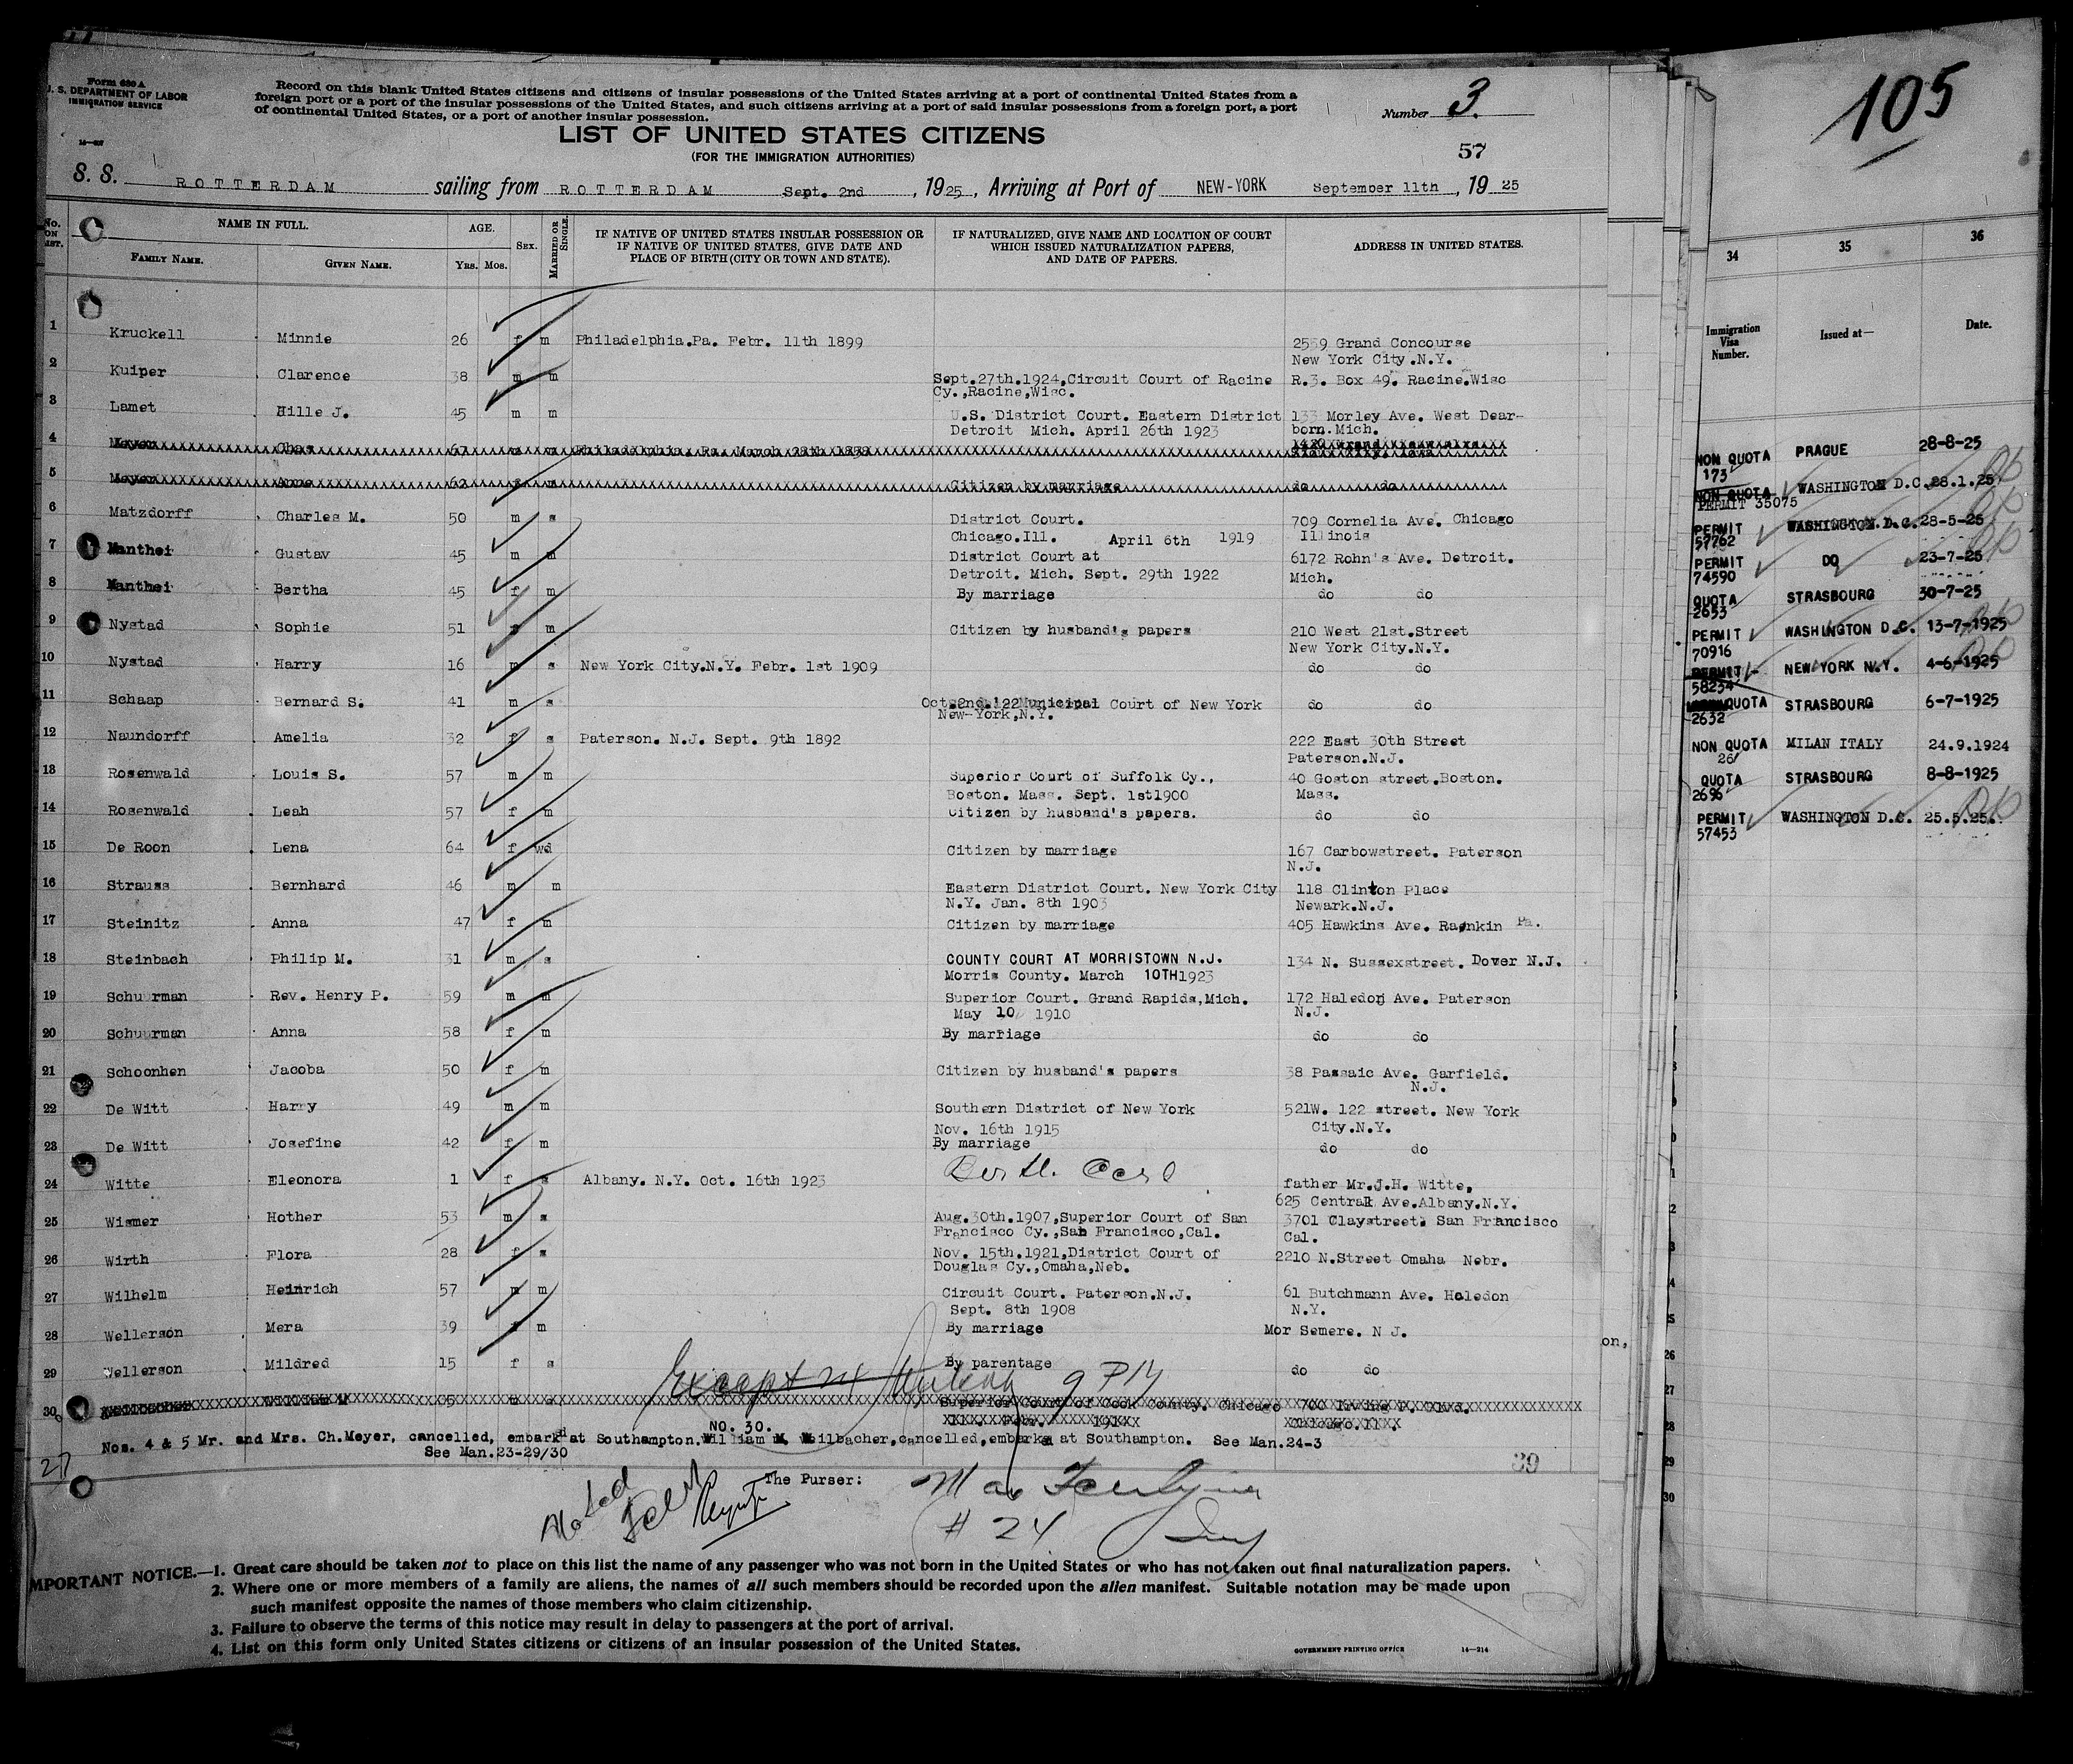 Form 630 A
U. S. DEPARTMENT OF LABOR
IMMIGRATION SERVICE
Record on this blank United States citizens and citizens of insular possessions of the United States arriving at a port of continental United States from a
foreign port or a port of the insular possessions of the United States, and such citizens arriving at a port of said insular possessions from a foreign port, a port
of continental United States, or a port of another insular possession.
Number 3.
LIST OF UNITED STATES CITIZENS
(FOR THE IMMIGRATION AUTHORITIES)
57
S. S. ROTTERDAM sailing from ROTTERDAM Sept. 2nd , 1925 , Arriving at Port of NEW-YORK September 11th , 19 25
No. ON LIST. NAME IN FULL. AGE. SEX. MARRIED OR SINGLE. IF NATIVE OF UNITED STATES INSULAR POSSESSION OR IF NATIVE OF UNITED STATES, GIVE DATE AND PLACE OF BIRTH (CITY OR TOWN AND STATE). IF NATURALIZED, GIVE NAME AND LOCATION OF COURT WHICH ISSUED NATURALIZATION PAPERS, AND DATE OF PAPERS. ADDRESS IN UNITED STATES.
FAMILY NAME. GIVEN NAME. YRS. MOS.
1 Kruckell Minnie 26 f m Philadelphia.Pa. Febr. 11th 1899 2559 Grand Concourse
New York City.N.Y.
2 Kuiper Clarence 38 m m Sept.27th.1924,Circuit Court of Racine R.3. Box 49. Racine.Wisc
Cy.,Racine,Wisc.
3 Lamet Hille J. 45 m m U.S. District Court. Eastern District 133 Morley Ave. West Dear-
Detroit Mich. April 26th 1923 born.Mich.
4 Meyer Chas 67 m m Philadelphia. Pa. March 28th 1858
Sioux City. Iowa
5 Meyer Anna 62 f m Citizen by marriage do do
6 Matzdorff Charles M. 50 m s District Court. 709 Cornelia Ave. Chicago
Chicago.Ill. April 6th 1919 Illinois
7 Manthei Gustav 45 m m District Court at 6172 Rohn's Ave. Detroit.
Detroit. Mich. Sept. 29th 1922 Mich.
8 Manthei Bertha 45 f m By marriage do do
9 Nystad Sophie 51 f m Citizen by husband's papers 210 West 21st.Street
New York City.N.Y.
10 Nystad Harry 16 m s New York City.N.Y. Febr. 1st 1909 do do
11 Schaap Bernard S. 41 m s Oct.2nd.'22 Municipal Court of New York do do
New-York,N.Y.
12 Naundorff Amelia 32 f s Paterson. N.J. Sept. 9th 1892 222 East 30th Street
Paterson.N.J.
13 Rosenwald Louis S. 57 m m Superior Court of Suffolk Cy., 40 Goston street.Boston.
Boston. Mass. Sept. 1st1900 Mass.
14 Rosenwald Leah 57 f m Citizen by husband's papers. do do
15 De Roon Lena 64 f wd Citizen by marriage 167 Carbowstreet. Paterson
N.J.
16 Strauss Bernhard 46 m m Eastern District Court. New York City 118 Clinton Place
N.Y. Jan. 8th 1903 Newark.N.J.
17 Steinitz Anna 47 f m Citizen by marriage 405 Hawkins Ave. Rankin Pa.
18 Steinbach Philip M. 31 m s COUNTY COURT AT MORRISTOWN N.J. 134 N. Sussexstreet. Dover N.J.
Morris County. March 10TH1923
19 Schuurman Rev. Henry P. 59 m m Superior Court. Grand Rapids,Mich. 172 Haledon Ave. Paterson
May 10 1910 N.J.
20 Schuurman Anna 58 f m By marriage do do
21 Schoonhen Jacoba 50 f m Citizen by husband's papers 38 Passaic Ave. Garfield.
N.J.
22 De Witt Harry 49 m m Southern District of New York 521W. 122 street. New York
Nov. 16th 1915 City.N.Y.
23 De Witt Josefine 42 f m By marriage do do
24 Witte Eleonora 1 f s Albany. N.Y. Oct. 16th 1923 father Mr.J.H. Witte,
625 Central Ave.Albany.N.Y.
25 Wismer Hother 53 m s Aug.30th.1907,Superior Court of San 3701 Claystreet. San Francisco
Francisco Cy.,San Francisco,Cal. Cal.
26 Wirth Flora 28 f s Nov. 15th.1921,District Court of 2210 N.Street Omaha Nebr.
Douglas Cy.,Omaha,Neb.
27 Wilhelm Heinrich 57 m m Circuit Court. Paterson.N.J. 61 Butchmann Ave. Haledon
Sept. 8th 1908 N.Y.
28 Wellerson Mera 39 f m By marriage Mor Semere. N J.
29 Wellerson Mildred 15 f s By parentage do do
Except
30 William M 65 m Superior Court of Cook County. Chicago 700 Irving P. Blvd.
Chicago.Ill.
NO. 30.
Nos. 4 & 5 Mr. and Mrs. Ch.Meyer, cancelled, embark at Southampton.William M. Weilbacher,cancelled,embarkd at Southampton. See Man.24-3
See Man.23-29/30
27
39
The Purser:
# 24
IMPORTANT NOTICE.—1. Great care should be taken not to place on this list the name of any passenger who was not born in the United States or who has not taken out final naturalization papers.
2. Where one or more members of a family are aliens, the names of all such members should be recorded upon the alien manifest. Suitable notation may be made upon
such manifest opposite the names of those members who claim citizenship.
3. Failure to observe the terms of this notice may result in delay to passengers at the port of arrival.
4. List on this form only United States citizens or citizens of an insular possession of the United States.
GOVERNMENT PRINTING OFFICE 14—214
on,
105
34 35 36
Immigration Visa Number. Issued at— Date.
NON QUOTA PRAGUE 28-8-25
173
NON QUOTA WASHINGTON D.C. 28.1.25
PERMIT 35075
PERMIT WASHINGTON.D.C. 28-5-25
57762
PERMIT DO 23-7-25
74590
QUOTA STRASBOURG 30-7-25
2653
PERMIT WASHINGTON D.C. 13-7-1925
70916
PERMIT NEW YORK N.Y. 4-6-1925
58234
QUOTA STRASBOURG 6-7-1925
2632
NON QUOTA MILAN ITALY 24.9.1924
26
QUOTA STRASBOURG 8-8-1925
2696
PERMIT WASHINGTON D.C. 25.5.25.
57453
26
27
28
29
30